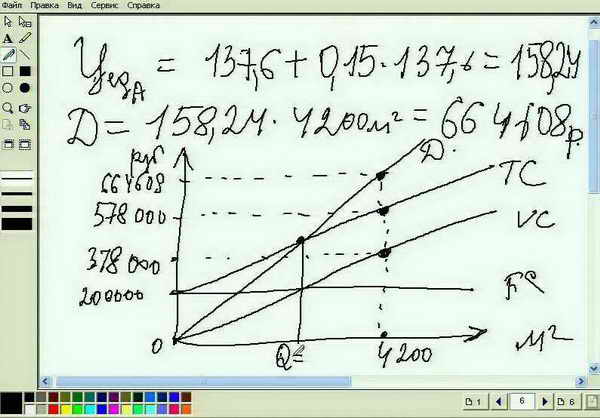 Файл Правка Вид Сервис Справка
Цед_А = 137,6 + 0,15 · 137,6 = 158,24
D = 158,24 · 4200 м² = 664 608 р.
руб
664608
578 000
378 000
200000
0
D.
TC
VC
FC
Q=
4200
м²
1
6
6